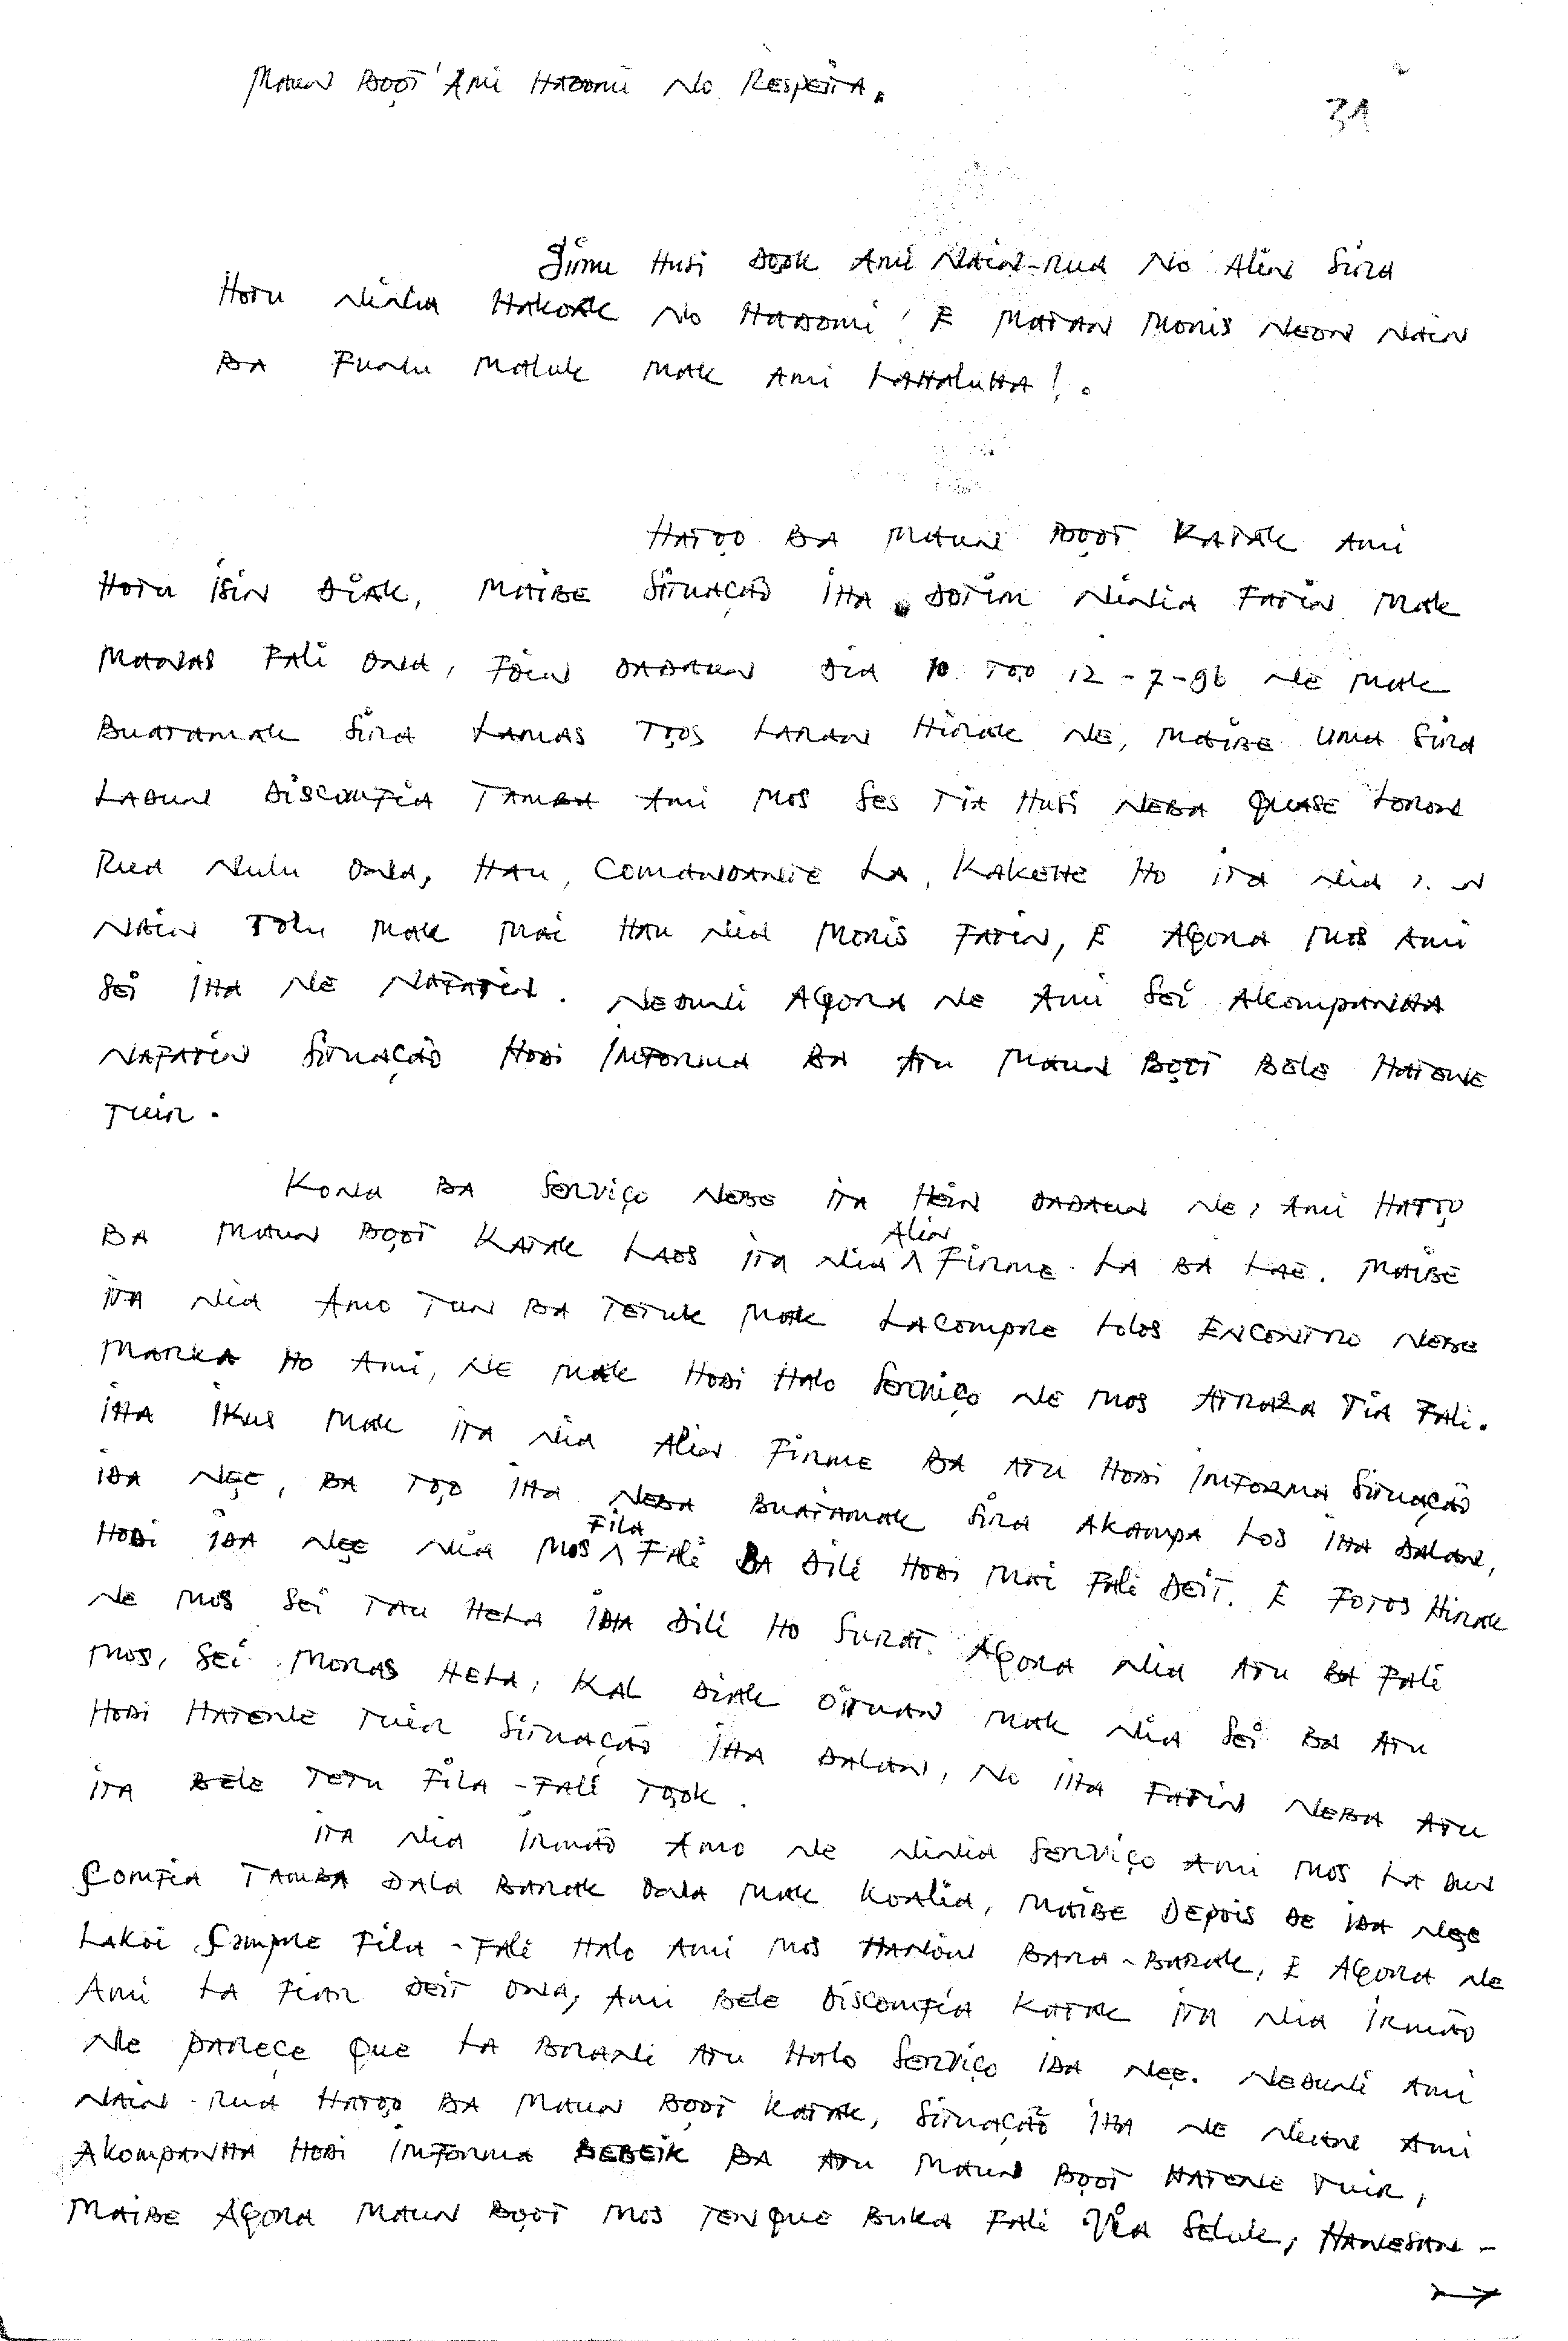 Maun Boot Ami Hadomi No Respeita.
31
Simu Husi Dook Ami Nain-Rua No Alin Sira
Hotu Ninia Hakoak No Hadomi! E Matan Moris Neon Nain
Ba Funu Maluk Mak Ami Lahaluha!.
Hatoo Ba Maun Boot Katak Ami
Hotu Isin Diak, Maibe Situação Iha Dotin Ninia Fatin Mak
Manas Fali Ona, Foin Dadaun Dia 10 Too 12-7-96 Ne Mak
Buatamak Sira Lamas Toos Laran Hirak Ne, Maibe Uma Sira
Ladun Disconfia Tamba Ami Mos Ses Tia Husi Neba Quase Loron
Rua Nulu Ona, Hau, Comandante La, Kakehe Ho Ita Nia
Nain Tolu Mak Mai Hau Nia Moris Fatin, E Agora Mos Ami
Sei Iha Ne Nafatin. Neduni Agora Ne Ami Sei Akompanha
Nafatin Situação Hodi Informa Ba Atu Maun Boot Bele Hatene
Tuir.
Kona Ba Serviço Nebe Ita Hein Dadaun Ne, Ami Hatoo
Ba Maun Boot Katak Laos Ita Nia Alin Firme La Ba Lae. Maibe
Ita Nia Amo Tun Ba Tetuk Mak Lacompre Lolos Encontro Nebe
Marka Ho Ami, Ne Mak Hodi Halo Serviço Ne Mos Atraza Tia Fali.
Iha Ikus Mak Ita Nia Alin Firme Ba Atu Hodi Informa Situação
Ida Nee, Ba Too Iha Neba Buatamak Sira Akampa Los Iha Dalan,
Hodi Ida Nee Nia Mos Fila Fali Ba Dili Hodi Mai Fali Deit. E Fotos Hirak
Ne Mos Sei Tau Hela Iha Dili Ho Surat. Agora Nia Atu Ba Fali
Mos, Sei Moras Hela, Kal Diak Oituan Mak Nia Sei Ba Atu
Hodi Hatene Tuir Situação Iha Dalan, No Iha Fatin Neba Atu
Ita Bele Tetu Fila-Fali Took.
Ita Nia Irmão Amo Ne Ninia Serviço Ami Mos La Dun
Comfia Tamba Dala Barak Ona Mak Koalia, Maibe Depois De Ida Nee
Lakoi Cumpre Fila-Fali Halo Ami Mos Hanoin Bara-Barak, E Agora Ne
Ami La Fiar Deit Ona, Ami Bele Discomfia Katak Ita Nia Irmão
Ne Parece Que La Brani Atu Halo Serviço Ida Nee. Neduni Ami
Nain-Rua Hatoo Ba Maun Boot Katak, Situação Iha Ne Neian Ami
Akompanha Hodi Informa Bebeik Ba Atu Maun Boot Hatene Tuir,
Maibe Agora Maun Boot Mos Tenque Buka Fali Via Seluk, Hanesan-